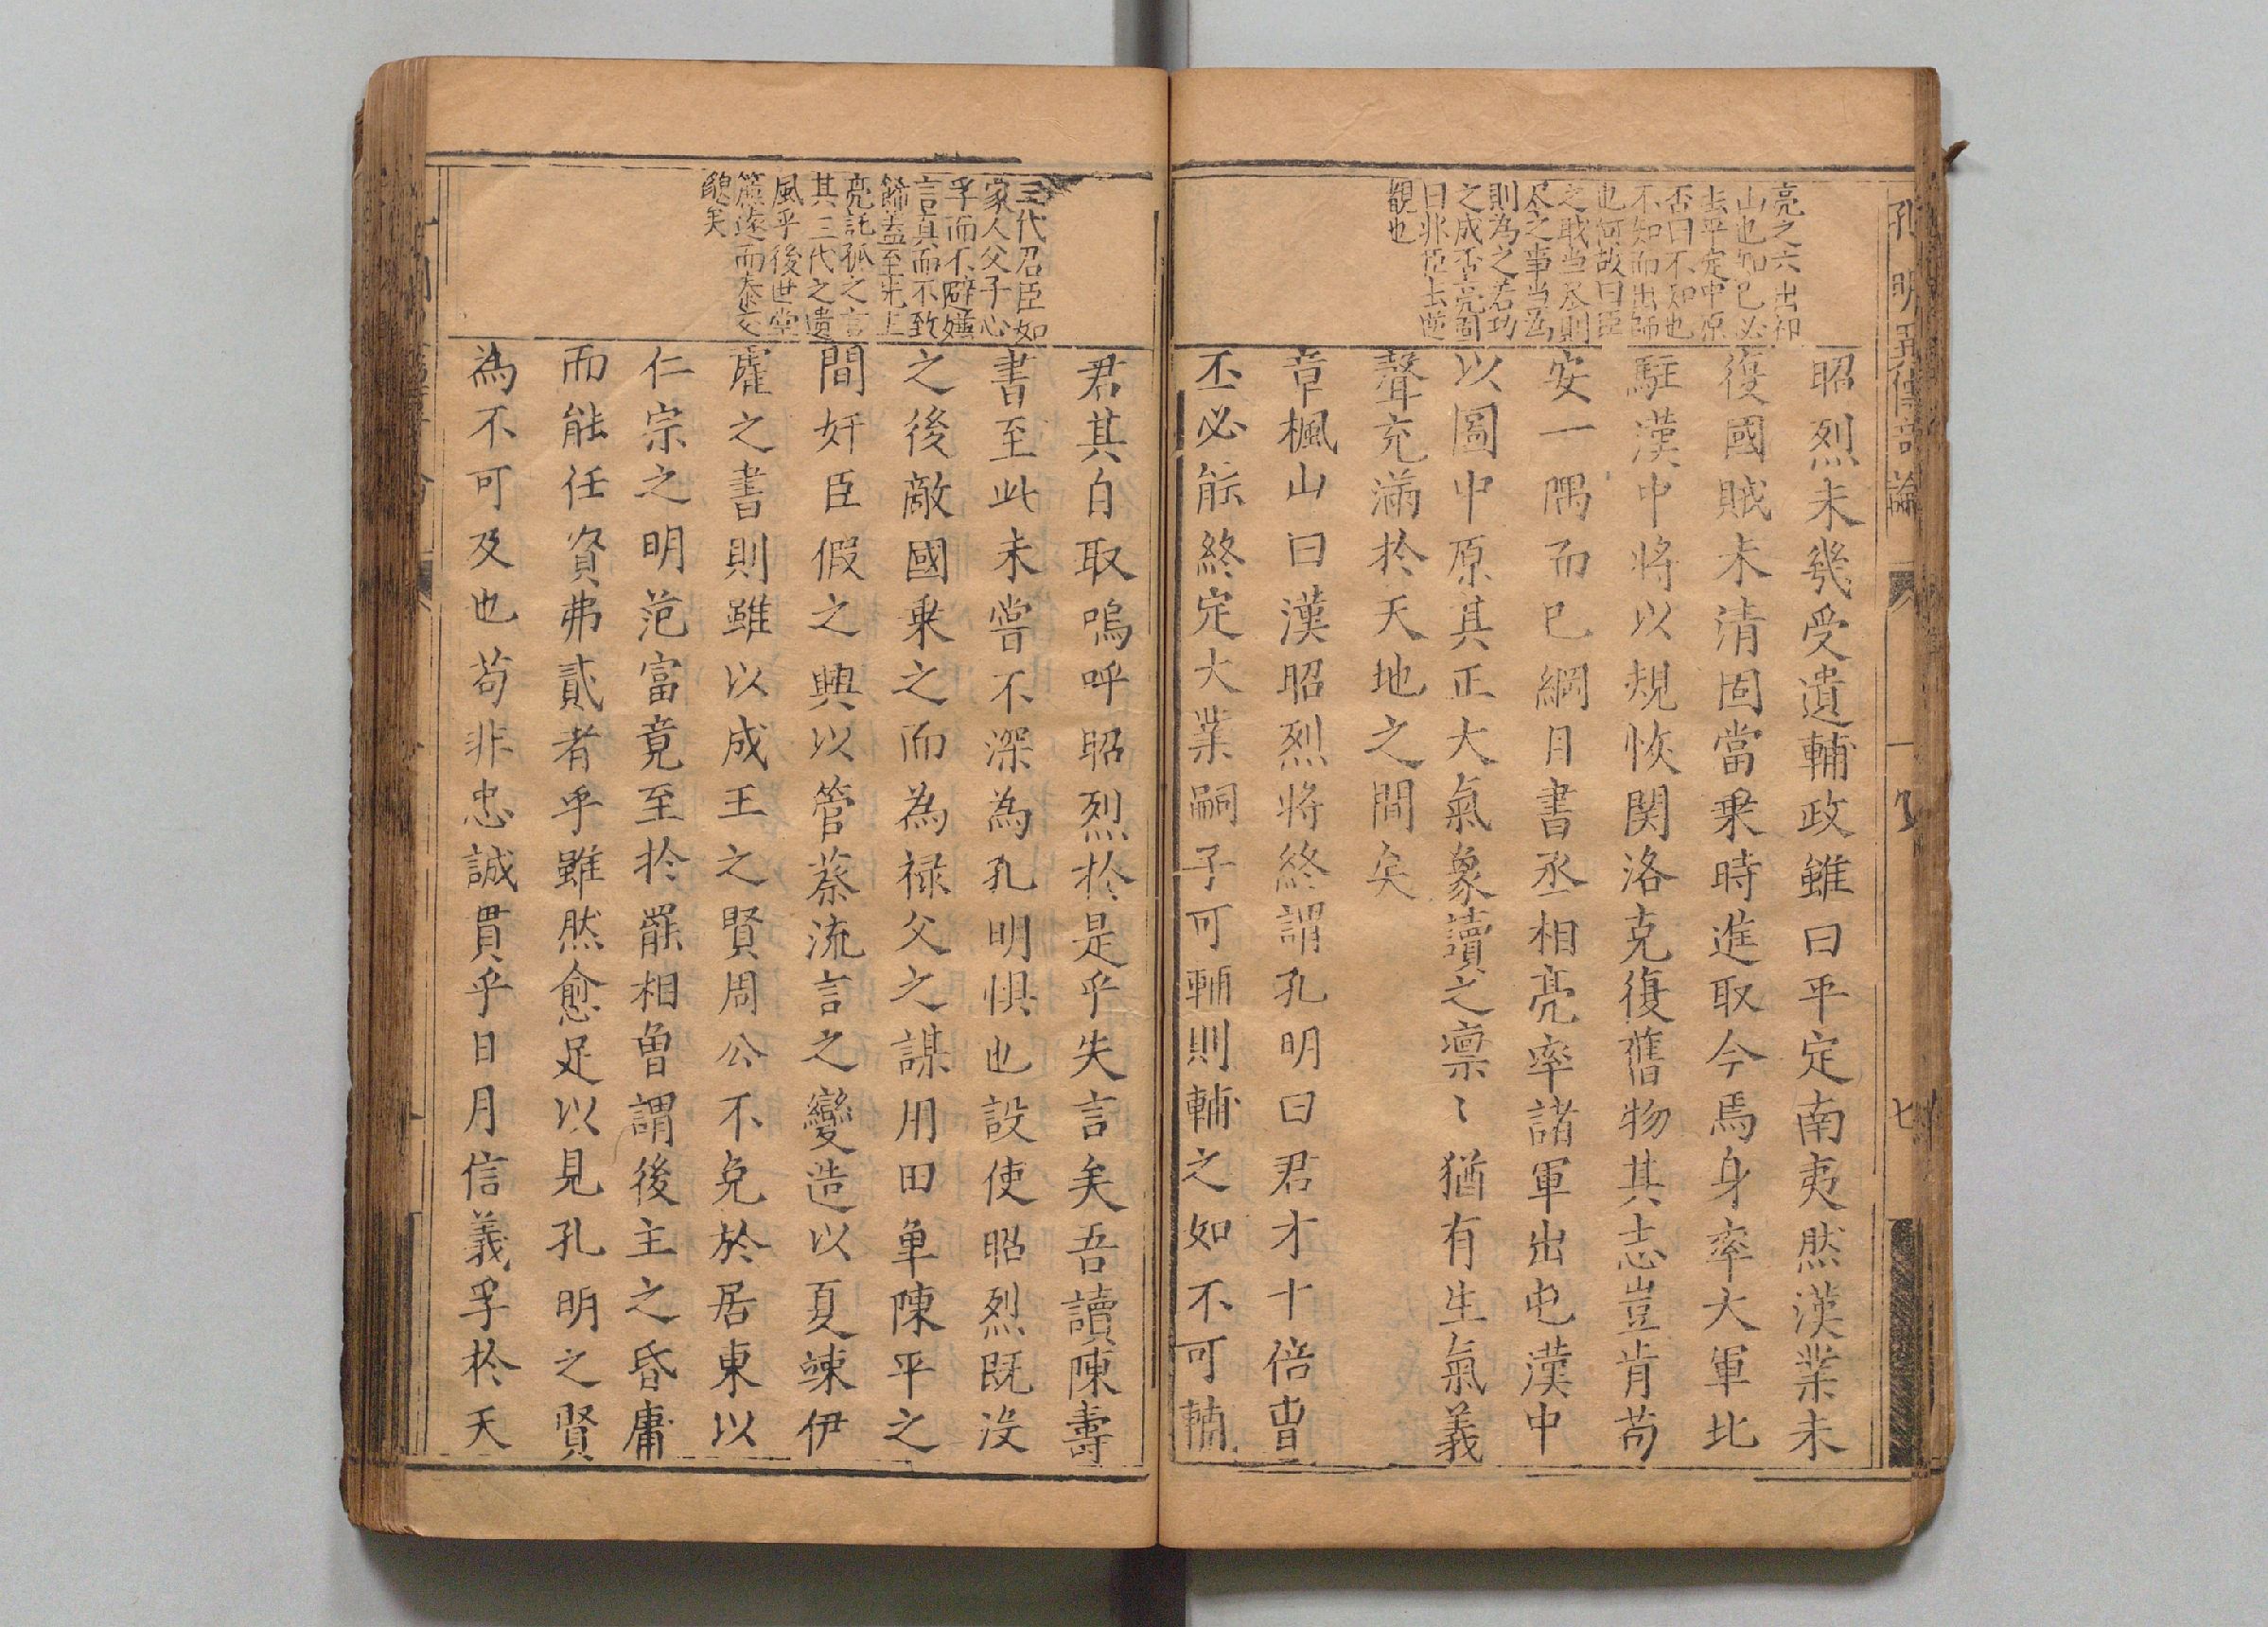 亮之六出祁
山也知已必
去平定中原
否曰不知也
不知而出師
也何故曰臣
之職当尽則
尽之事当為
則為之若功
之成否亮固
曰非臣去逆
覩也
昭烈未幾受遺輔政雖曰平定南夷然漢業未
復國賊未清固當乘時進取今焉身率大軍北
駐漢中將以規恢関洛克復舊物其志豈肯苟
安一隅而已綱目書丞相亮率諸軍出屯漢中
以圖中原其正大氣象讀之凛〻猶有生氣義
聲充滿於天地之間矣
章楓山曰漢昭烈將終謂孔明曰君才十倍曹
丕必能終定大業嗣子可輔則輔之如不可輔
三代君臣如
家人父子心
孚而不避嫌
言真而不致
飾盖至先主
亮託孤之言
其三代之遺
風乎後世堂
簾遠而泰交
䫉矣
君其自取嗚呼昭烈於是乎失言矣吾讀陳壽
書至此未嘗不深為孔明惧也設使昭烈既沒
之後敵國乘之而為禄父之謀用田单陳平之
間奸臣假之興以管蔡流言之變造以夏竦伊
霍之書則雖以成王之賢周公不免於居東以
仁宗之明范富竟至於罷相曾謂後主之昏庸
而能任資弗貳者乎雖然愈足以見孔明之賢
為不可及也苟非忠誠貫乎日月信義孚於天